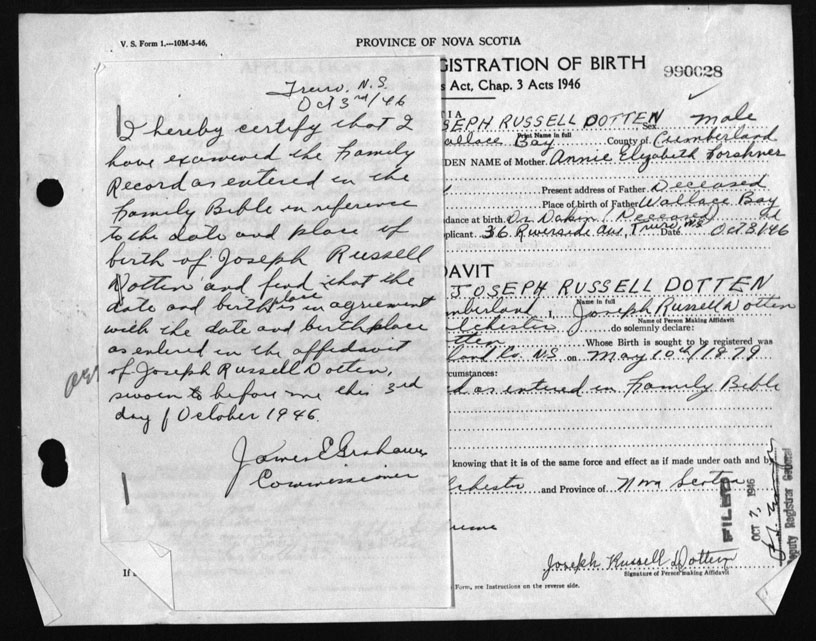 V. S. Form 1.—10M-3-46.
PROVINCE OF NOVA SCOTIA
GISTRATION OF BIRTH
990028
s Act, Chap. 3 Acts 1946
Truro, N.S.
Oct 3rd/46
I hereby certify that I
have examined the Family
Record as entered in the
Family Bible in reference
to the date and place of
birth of Joseph Russell
Dotten and find that the
date and birth place is in agreement
with the date and birthplace
as entered in the affidavit
of Joseph Russell Dotten,
sworn to before me this 3rd
day of October 1946.
James E Graham
Commissioner
SEPH RUSSELL DOTTEN Sex male
Print Name in full
allace Bay County of Cumberland
DEN NAME of Mother Annie Elizabeth Forshner
Present address of Father Deceased
Place of birth of Father Wallace Bay
dance at birth. Dr Dakin (Deceased)
plicant. 36 Riverside Ave, Truro, N.S. Date Oct 3/46
DAVIT
JOSEPH RUSSELL DOTTEN
Name in full
mberland I, Joseph Russell Dotten
Name of Person Making Affidavit
lchester do solemnly declare:
otten Whose Birth is sought to be registered was
land Co. N.S. on May 10th/1879
cumstances:
d as entered in Family Bible
knowing that it is of the same force and effect as if made under oath and by
lchester and Province of Nova Scotia
FILED
OCT 7, 1946
Deputy Registrar General
Joseph Russell Dotten
Signature of Person making Affidavit
If
Form, see Instructions on the reverse side.